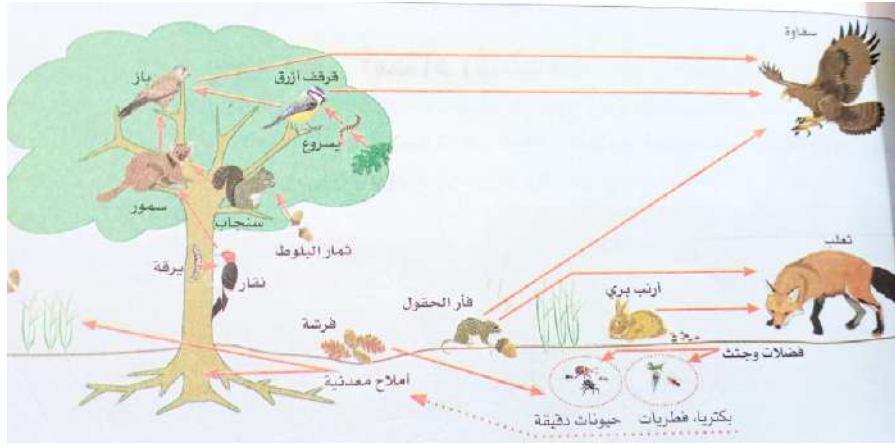 سقاوة
باز
قرقف أزرق
يسروع
سمور
سنجاب
ثمار البلوط
يرقة
نقار
ثعلب
أرنب بري
فأر الحقول
فرشة
فضلات وجثث
أملاح معدنية
حيونات دقيقة
بكتريا، فطريات